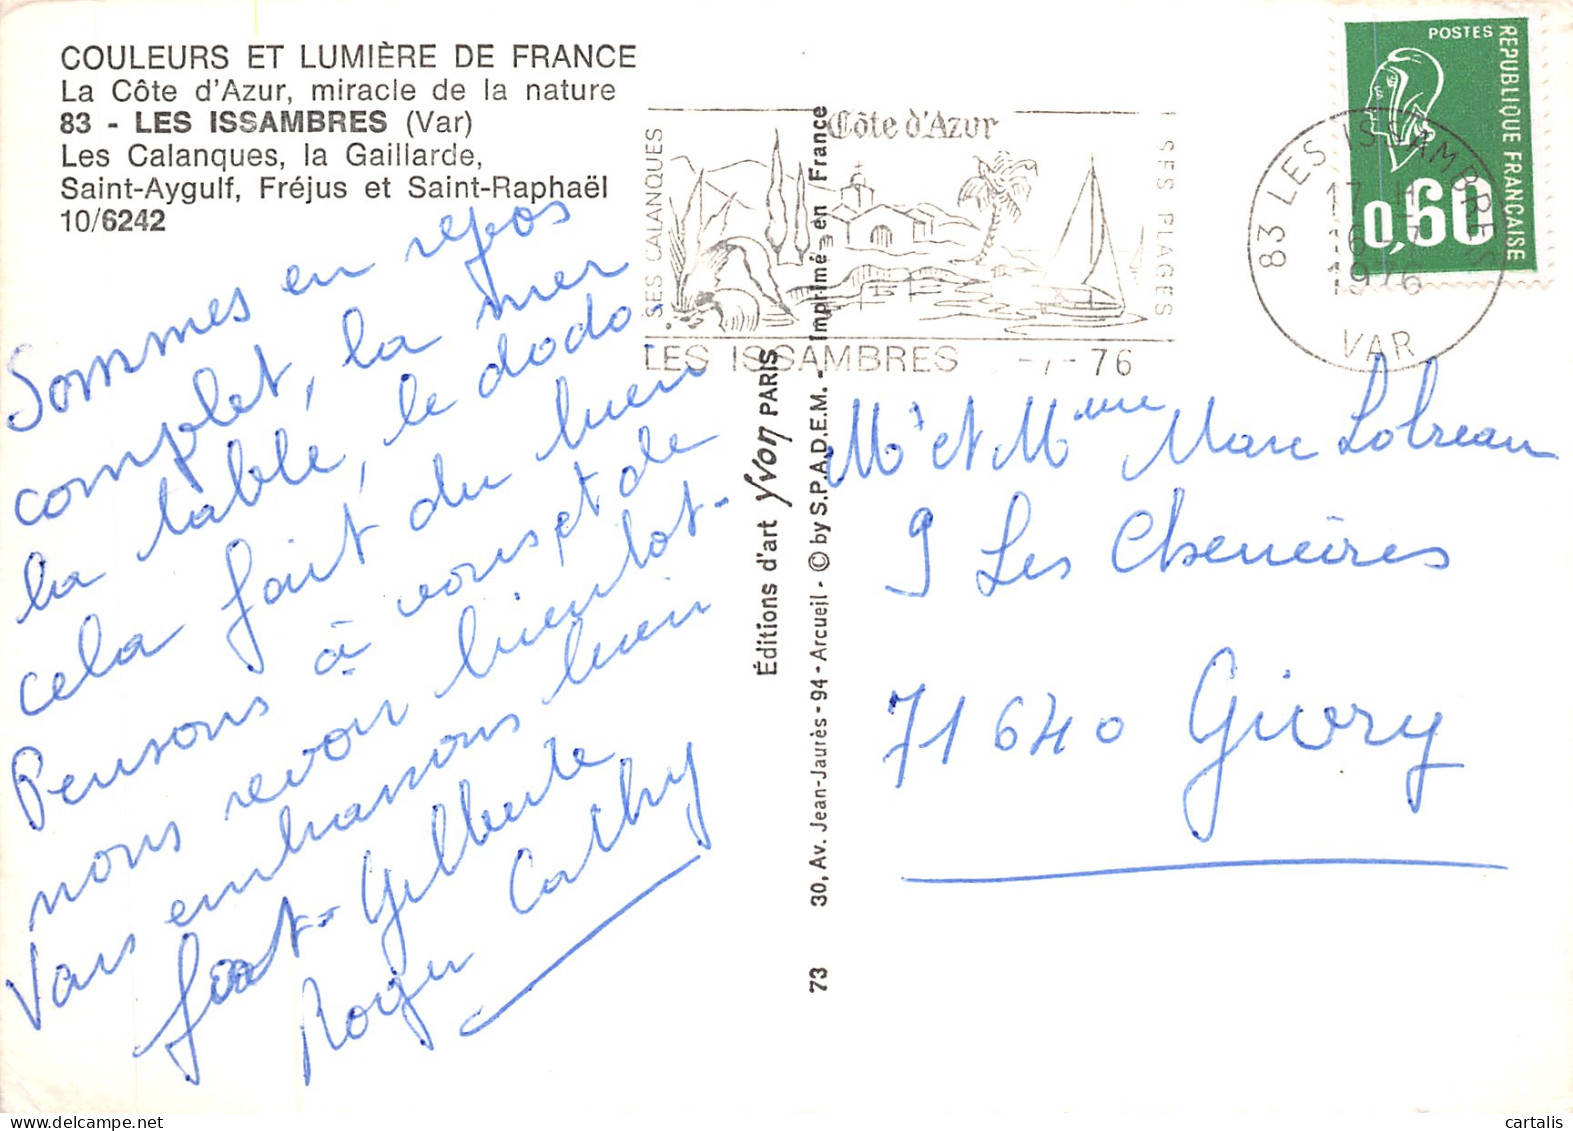 COULEURS ET LUMIÈRE DE FRANCE
La Côte d'Azur, miracle de la nature
83 - LES ISSAMBRES (Var)
Les Calanques, la Gaillarde,
Saint-Aygulf, Fréjus et Saint-Raphaël
10/6242
Sommes en repos
complet, la mer
la table, le dodo.
cela fait du bien
Pensons à vous et de
nous revoir bientot-
Vous embrassons bien
fort- Gilberte
Roger Cathy
SES CALANQUES
Côte d'Azur
SES PLAGES
LES ISSAMBRES -7-76
Éditions d'art Yvon PARIS
73 30, Av. Jean-Jaurès - 94 - Arcueil - © by S.P.A.D.E.M. - Imprimé en France
POSTES
REPUBLIQUE FRANÇAISE
0,60
83 LES ISSAMBRES
17 H
16 -7
1976
VAR
Mr et Mme Marc Lobreau
9 Les Chenevières
71640 Givry
cartalis
www.delcampe.net